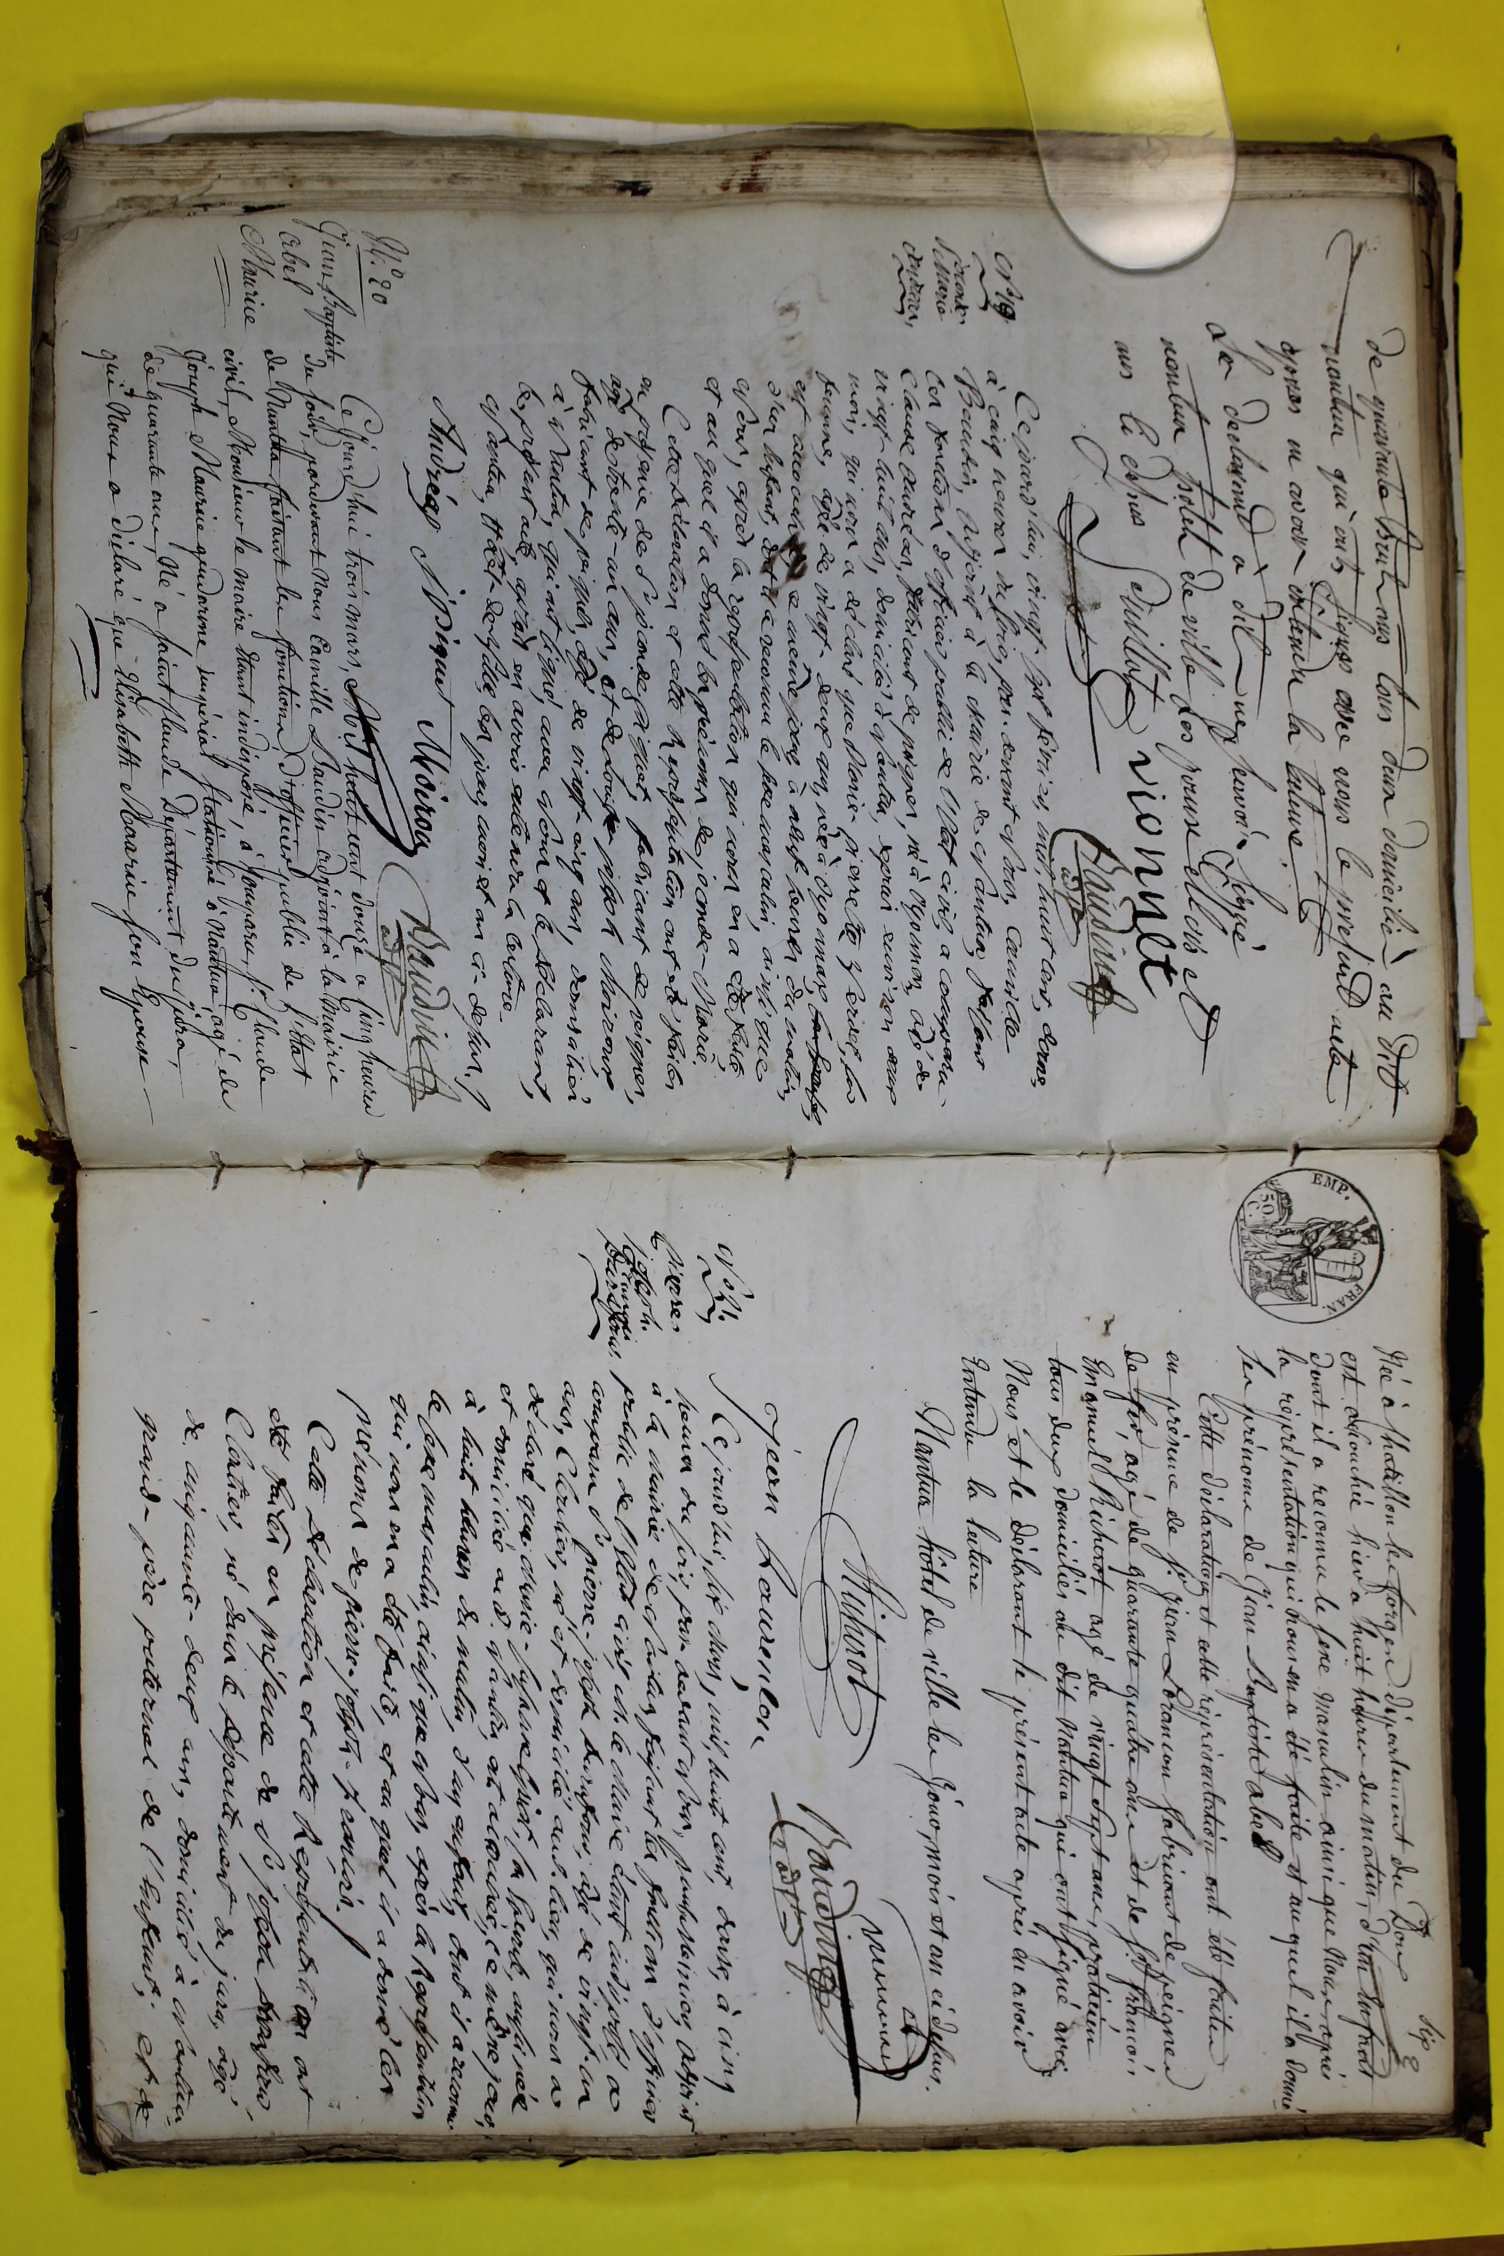 de quarante huit ans tous deux domicilié au dit
nantua qui ont signés avec nous le présent acte
apres en avoir entendu la lecture
Le declarant a dit ne savoir signé
nantua hotel de ville les jour mois et
ans ci dessus Guillot vionnet
Baudin
adjt
N° 19.
Ce jourd'hui, vingt sept février, mil huit cent douze
à cinq heures du soir, par devant Nous, Camille
Baudin, adjoint à la mairie de Nantua, faisant
les fonctions d'officier public de l'état civil, a comparu
Claude fabricant de peignes, né à Oyonnax, agé de
vingt huit ans, domicilié à Nantua,
mois, qui nous a déclaré que Marie pierrette Verdet, sa
femme, agée de vingt deux ans, née à Oyonnax,
est accouchée ce même jour à neuf heures du matin,
d'un Enfant, dont il a reconnu le sexe masculin, ainsi que
Nous, après la représentation qui nous en a été faite
et au quel il a donné les prénoms de joconde Marie,
Cette déclaration et cette représentation ont été faites
en présence de S.r joconde fabricant de peignes,
agé de trente un ans, et de joseph Moiroux,
fabricant de peignes, agé de vingt cinq ans, domiciliés
à Nantua, qui ont signé, avec Nous et le déclarant,
le présent acte, après en avoir entendu la lecture.
Nantua, Hôtel de ville, les jour, mois et an ci-dessus.
Andréas Moiroux
Baudin
adjt
N.° 20
Jean-Baptiste
abel
Maurice
Ce Jourd'hui trois mars, Mil huit cent douze a Cinq heures
du soir, pardevant Nous Camille Baudin adjoint à la Mairie
de Nantua faisant les fonctions d'officier public de l'Etat
civil, Monsieur le maire étant indisposé, à Comparu, S.r Claude
Joseph Maurice gendarme impérial stationné à Nantua, agé de
de quarante ans, Né a Saint Claude Département du jura,
qui Nous a déclaré que Elisabeth Maurice son Epouse
EMP.
FRAN.
50
C.
Née à Chatillon les forges Département du Doubs
est accouchée hier a huit heures du matin, d'un Enfant
dont il a reconnu le sexe masculin ainsi que Nous après
la représentation qui nous en a été faite et au quel il a donné
les prénoms de Jean Baptiste abel
Cette déclaration et cette représentation ont été faites
en présence de S.r Jean Lorançon fabricant de peignes
de fer agé de quarante quatre ans et de S.r françois
Emanuel Nichirot agé de vingt sept ans, praticien
tous deux domiciliés au dit Nantua qui ont signé avec
Nous et le déclarant le présent acte après en avoir
Entendu la lecture
Nantua hôtel de ville les jour, mois et an ci dessus.
maurice
Baudin
adjt
jean Laurenson
N° 21.
Pierre
joseph
françois
Ce jourd'hui, six mars, mil huit cent, douze, à cinq
heures du soir, par devant Nous, Camille Baudin, adjoint
à la mairie de Nantua, faisant les fonctions d'officier
public de l'état civil, M. le Maire étant indisposé a
comparu S.r pierre-joseph agé de vingt-un
ans, né et domicilié audit lieu, qui nous a
déclaré que Marie son Epouse, aussi née
et domiciliée au d. Nantua, est accouchée, ce même jour,
à huit heures du matin, d'un enfant, dont il a reconnu
le sexe masculin, ainsi que Nous, après la représentation
qui nous en a été faite, et au quel il a donné les
prénoms de pierre-joseph-françois.
Cette déclaration et cette représentation ont
été faites en présence de S.r joseph
né dans le Département du jura, agé
de cinquante-deux ans, domicilié à Nantua,
grand-père paternel de l'Enfant; et de